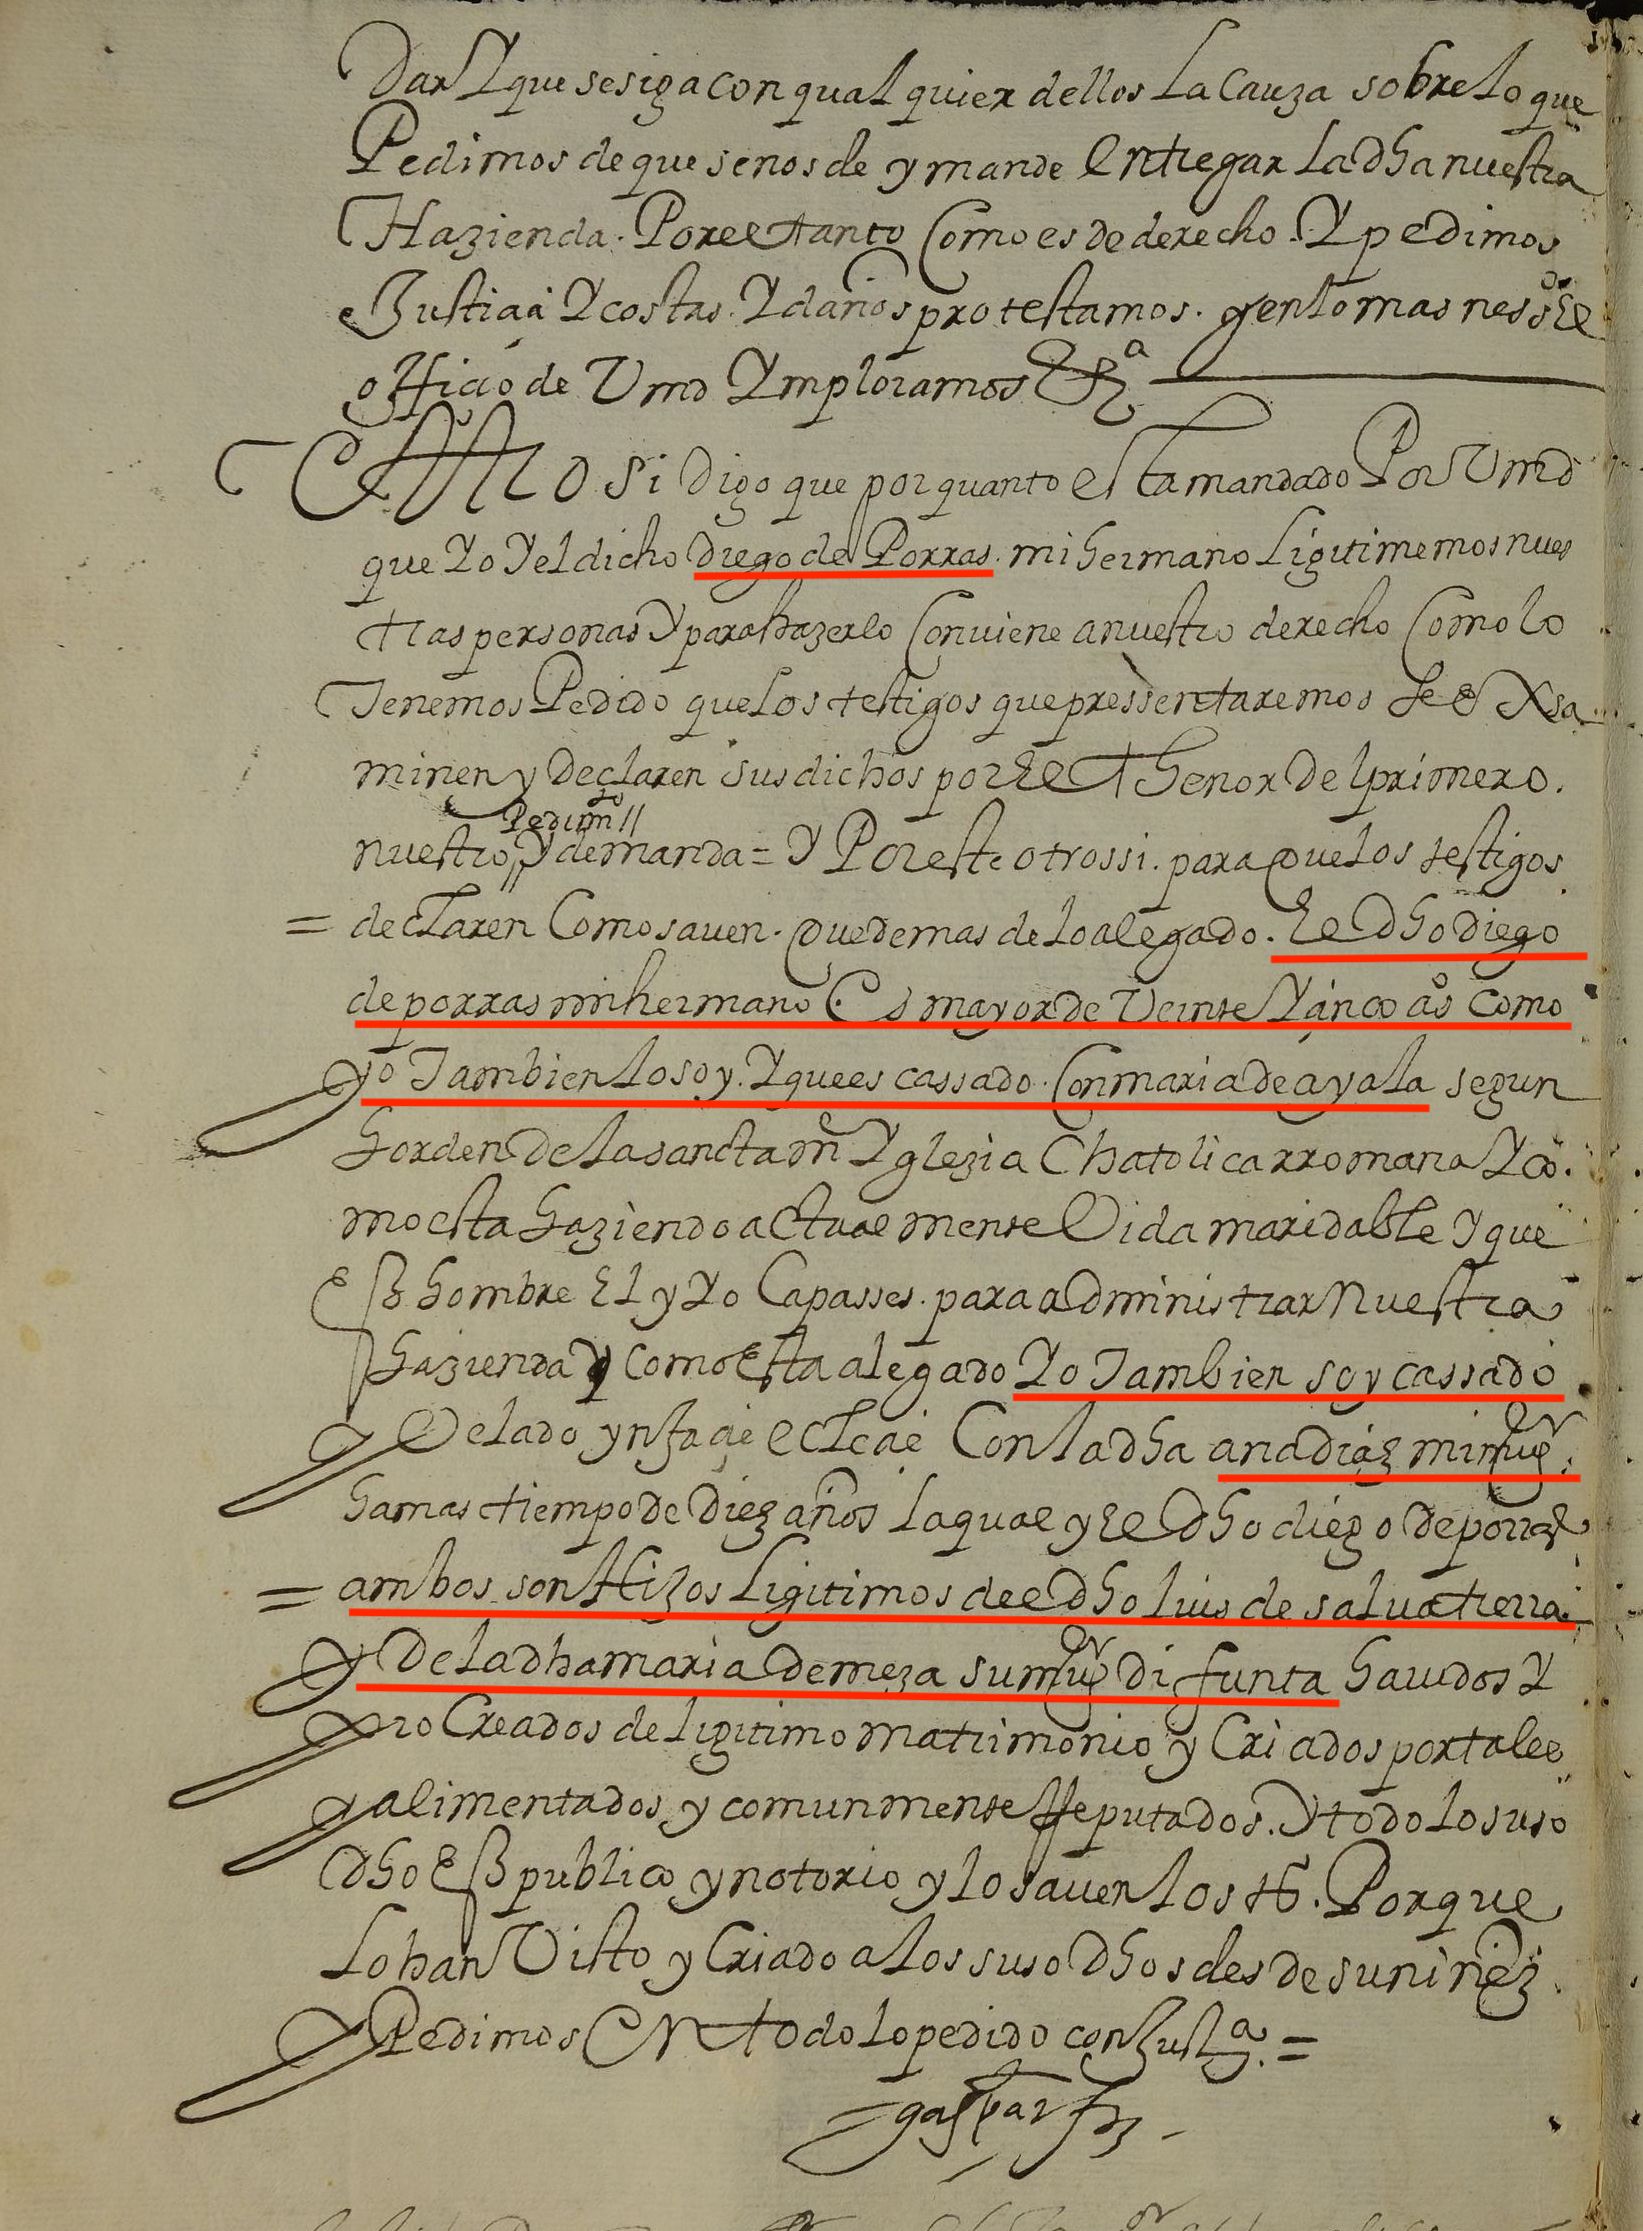 Dar Y que se siga con qual quier dellos La Cauza sobre lo que
Pedimos de que se nos de y mande Entregar La dha nuestra
Hazienda. Por el tanto Como es de derecho. Y pedimos
Justicia Y costas. Y daños protestamos. y en lo mas nesso El
officio de Vmd Ymploramos Etta
Otro si Digo que por quanto esta mandado Por Vmd
que Yo Y el dicho Diego de Porras. mi hermano Ligitimemos nues
tras personas Y para hazerlo Conviene a nuestro derecho Como lo
Tenemos Pedido que Los testigos que pressentaremos se Exsa
minen y Declaren sus dichos por El Thenor Del primero.
Pedimto //
nuestro // Y demanda = Y Por este otrossi. para que Los testigos
= declaren Como saven. que demas de Lo alegado. El dho Diego
de porras mi hermano Es mayor de Veinte Y cinco aos Como
yo Tambien lo soy. Y que es cassado. Con maria de ayala segun
horden De La sancta me Yglezia Chatolica rromana Y co.
mo esta haziendo actualmente Vida maridable Y que
Es hombre El y Yo Capasses. para administrar Nuestra
hazienda Y como Esta alegado Yo Tambien soy cassado
Velado yn facie eclecie Con la dha ana diaz mi muger.
ha mas tiempo de Diez años La qual y El dho diego de porras
= ambos son Hijos Ligitimos del dho luis de salvatierra
y De la dha maria de meza su muger difunta havidos Y
pro Creados de ligitimo matrimonio y Criados por tales
y alimentados y comunmente Reputados. Y todo lo suso
dho Es publico y notorio y lo saven los ts. Porque
Lo han Visto y Criado a Los suso dhos desde su niñez.
Y Pedimos EN todo lo pedido con Justa. =
= gaspar frz -